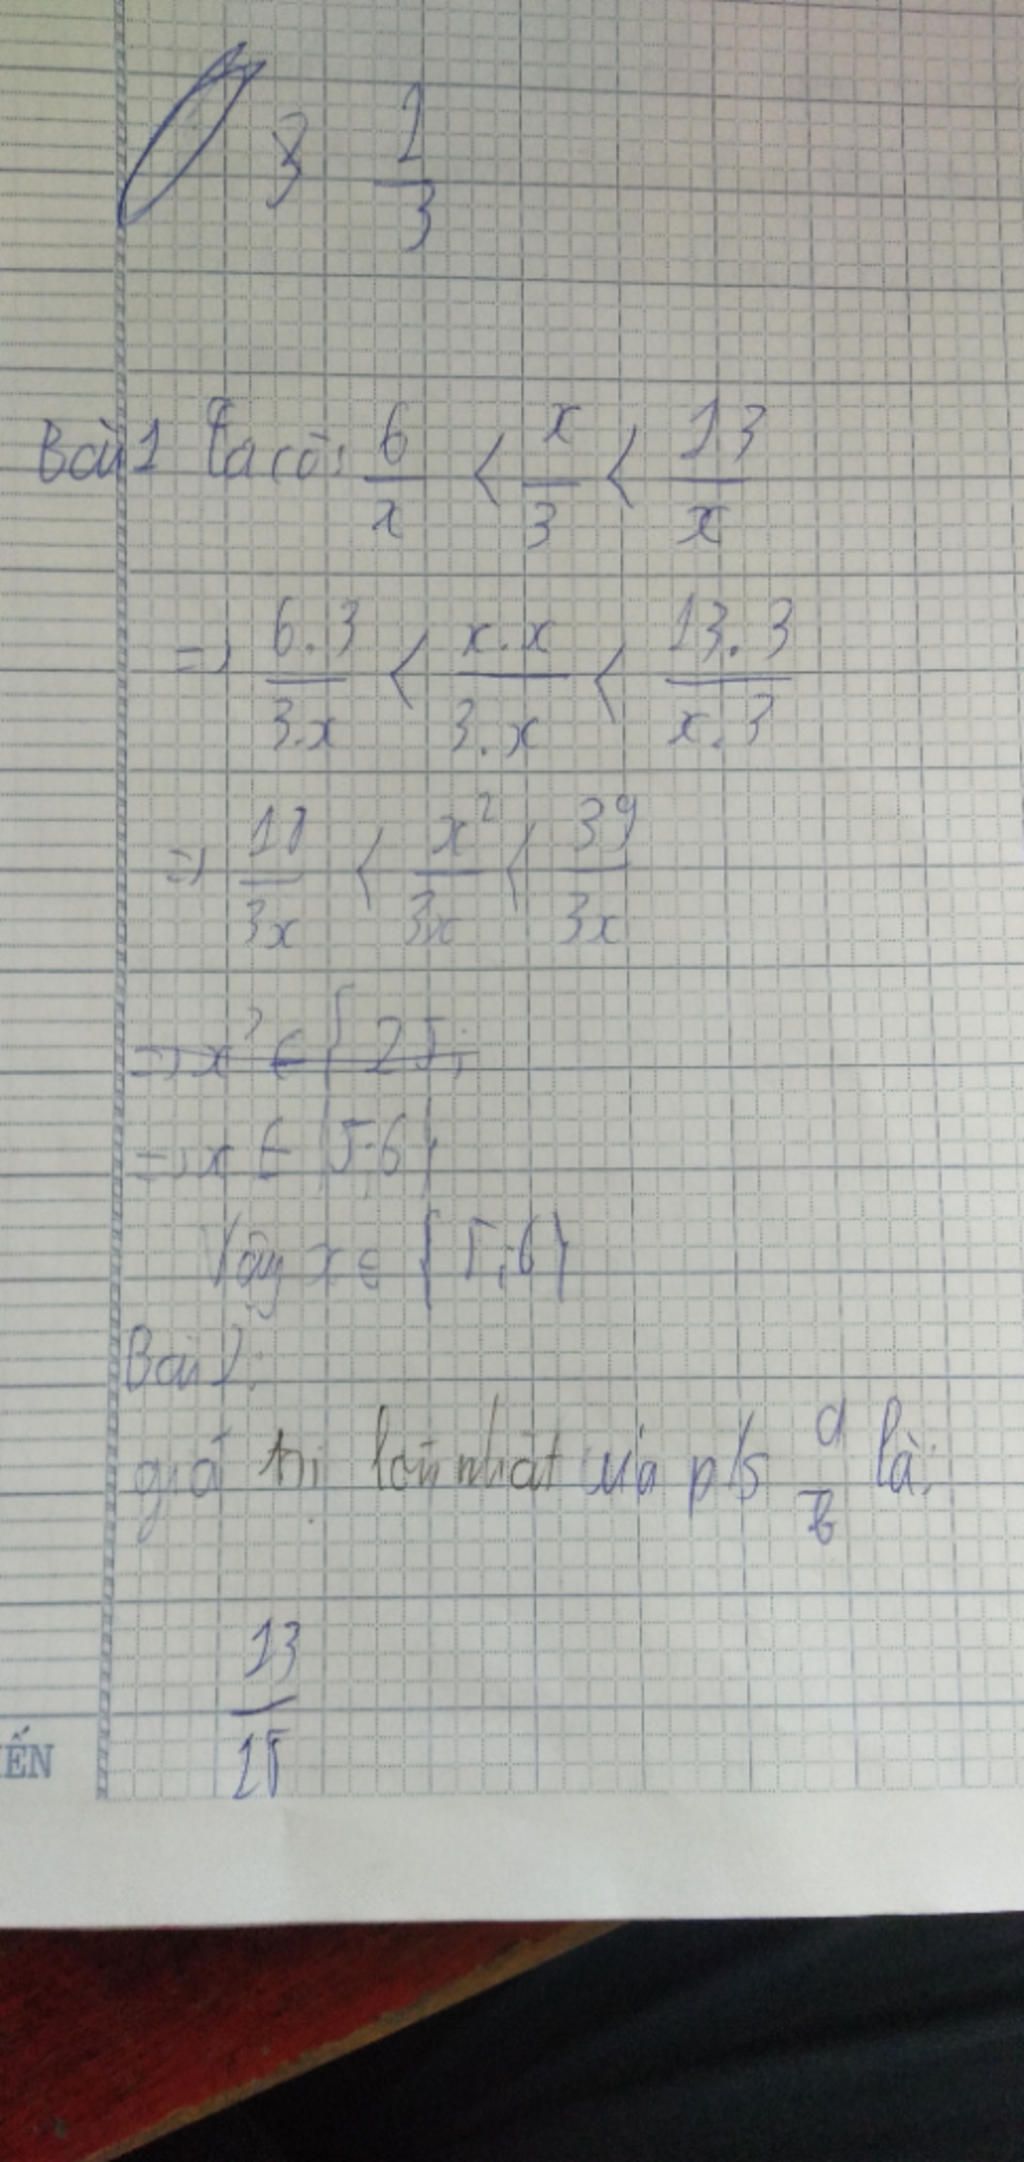 3 2/3
Bài 1 Ta có: 6/x < x/3 < 13/x
=> 6.3/3.x < x.x/3.x < 13.3/x.3
=> 18/3x < x²/3x < 39/3x
=> x² ∈ { 25;
=> x ∈ {5;6}
Vậy x ∈ {5;6}
Bài 2:
giá trị lớn nhất của p/s a/b là:
13/15
ẾN